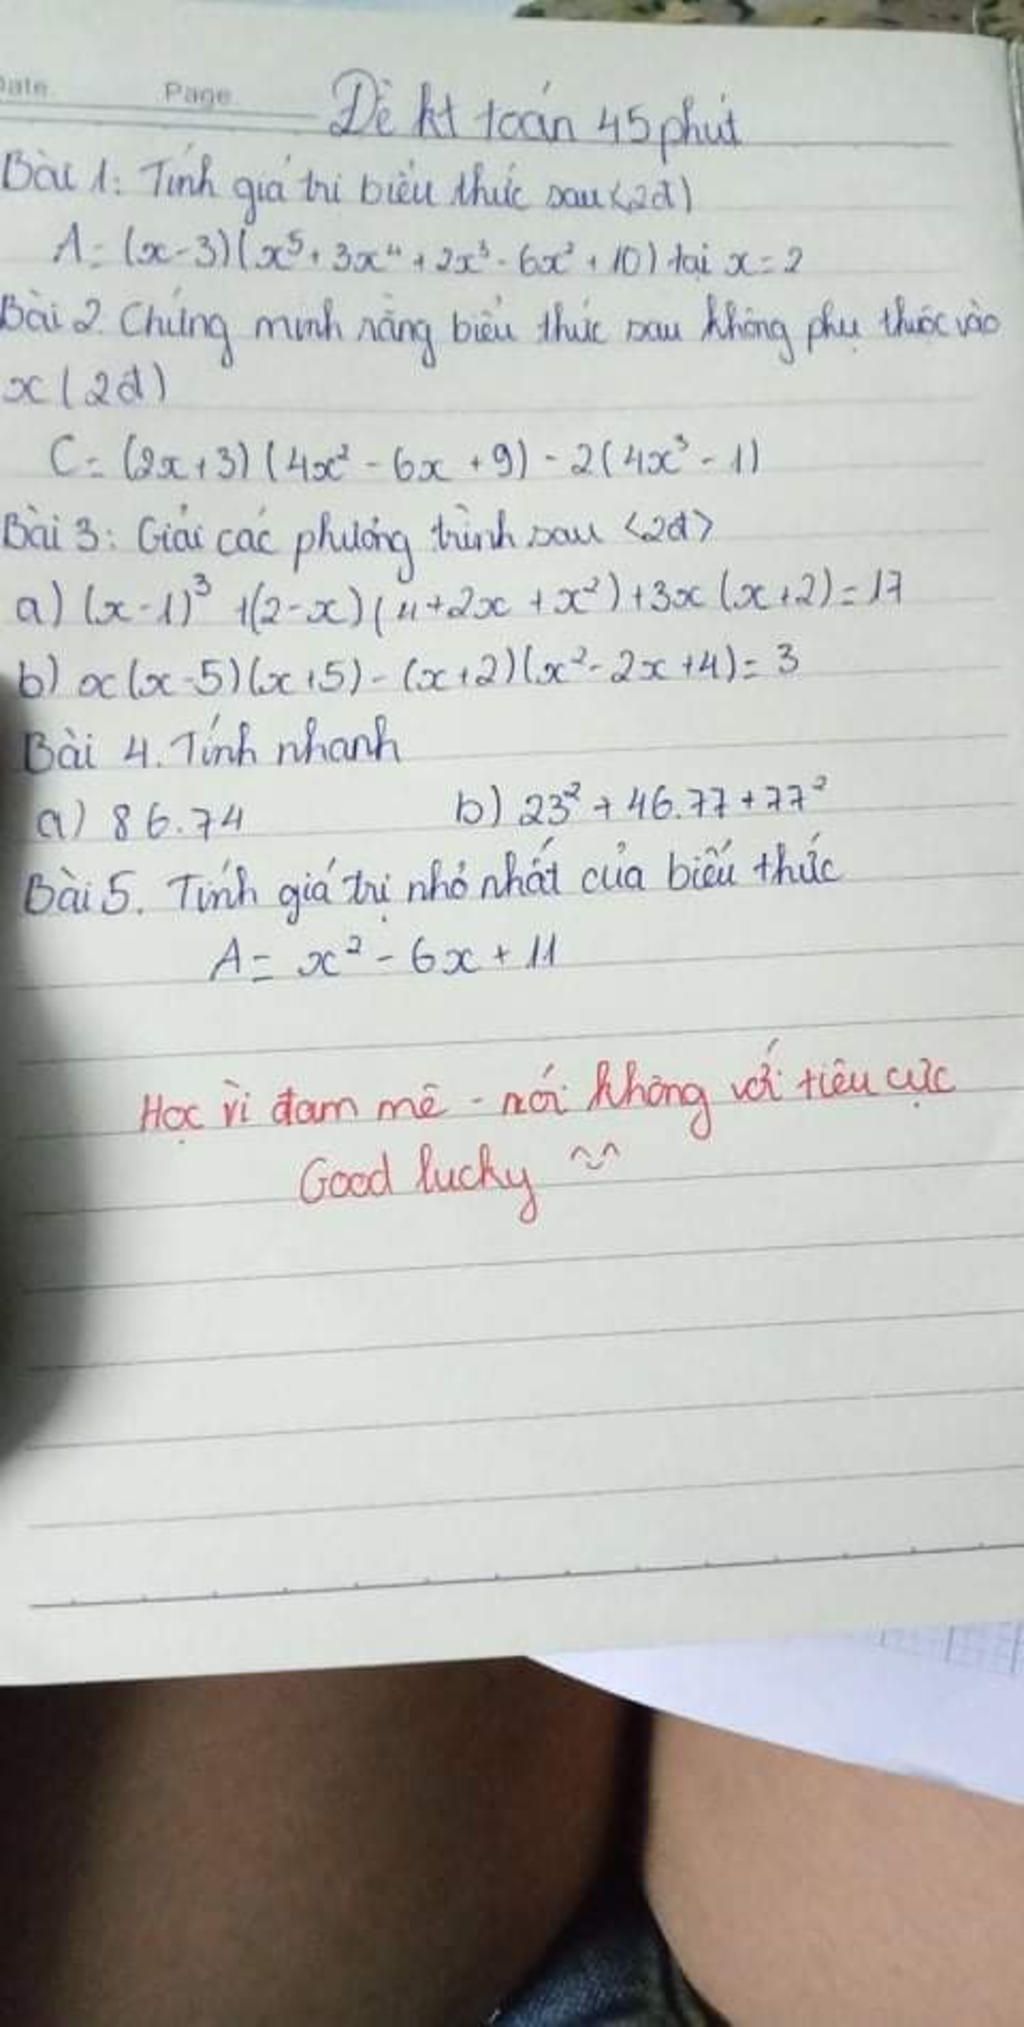 Date Page
Đề kt toán 45 phút
Bài 1: Tính giá trị biểu thức sau <2đ)
A = (x-3)(x⁵+3x⁴+2x³-6x²+10) tại x=2
Bài 2. Chứng minh rằng biểu thức sau không phụ thuộc vào
x (2đ)
C = (2x+3)(4x²-6x+9)-2(4x³-1)
Bài 3: Giải các phương trình sau <2đ>
a) (x-1)³+(2-x)(4+2x+x²)+3x(x+2)=17
b) x(x-5)(x+5)-(x+2)(x²-2x+4)=3
Bài 4. Tính nhanh
a) 86.74 b) 23²+46.77+77²
Bài 5. Tính giá trị nhỏ nhất của biểu thức
A = x²-6x+11
Học vì đam mê - nói không với tiêu cực
Good lucky